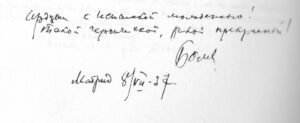 сердцем к испанской молодежи!
такой героической, такой прекрасной!
Мадрид 8/VII-37.